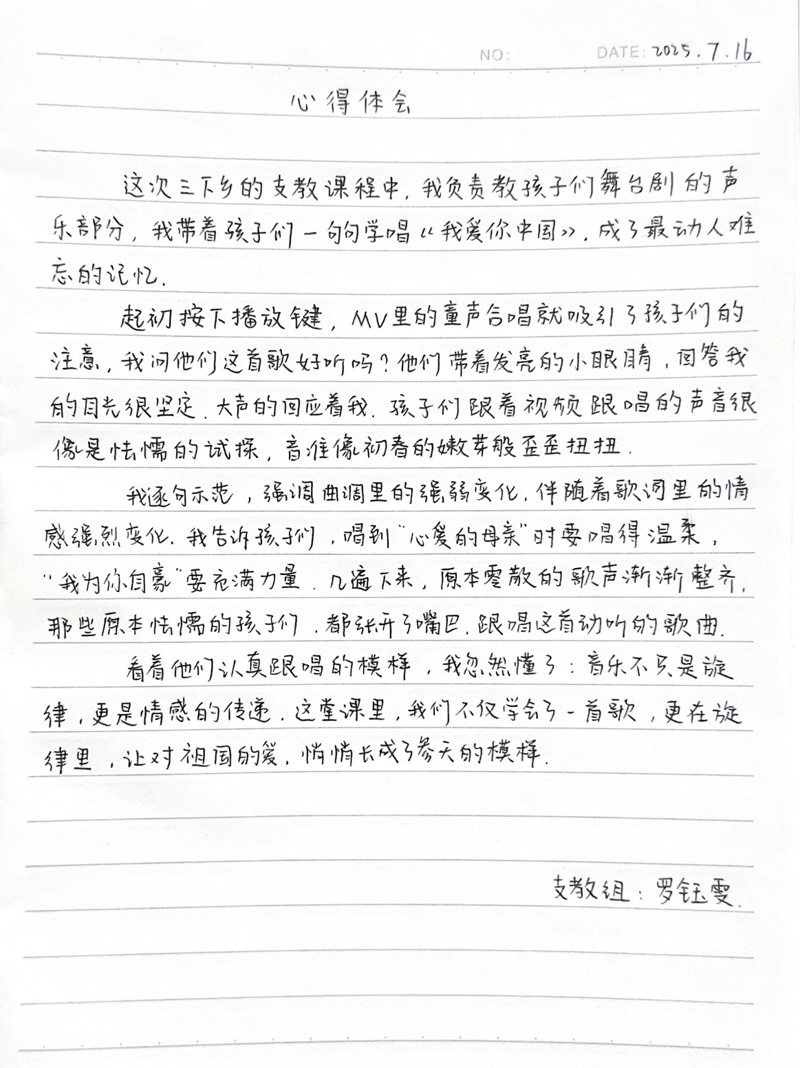 NO: DATE: 2025.7.16
心得体会
这次三下乡的支教课程中,我负责教孩子们舞台剧的声
乐部分,我带着孩子们一句句学唱《我爱你中国》,成了最动人难
忘的记忆.
起初按下播放键,MV里的童声合唱就吸引了孩子们的
注意,我问他们这首歌好听吗?他们带着发亮的小眼睛,回答我
的目光很坚定.大声的回应着我.孩子们跟着视频跟唱的声音很
像是怯懦的试探,音准像初春的嫩芽般歪歪扭扭.
我逐句示范,强调曲调里的强弱变化.伴随着歌词里的情
感强烈变化.我告诉孩子们,唱到“心爱的母亲”时要唱得温柔,
“我为你自豪”要充满力量.几遍下来,原本零散的歌声渐渐整齐.
那些原本怯懦的孩子们.都张开了嘴巴.跟唱这首动听的歌曲.
看着他们认真跟唱的模样,我忽然懂了:音乐不只是旋
律,更是情感的传递.这堂课里,我们不仅学会了一首歌,更在旋
律里,让对祖国的爱,悄悄长成了参天的模样.
支教组:罗钰雯.